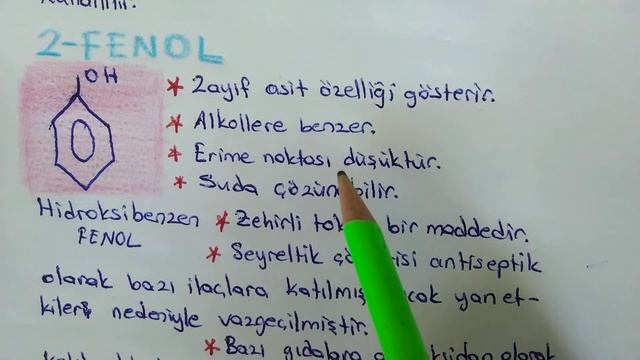 2-FENOL
OH
* Zayıf asit özelliği gösterir.
* Alkollere benzer.
* Erime noktası düşüktür.
* Suda
Hidroksibenzen
FENOL
* Zehirli bir maddedir.
* Seyreltik antiseptik
olarak bazı ilaçlara katılmış yan et-
kileri nedeniyle vazgeçilmiştir.
* Bazı gıdalara